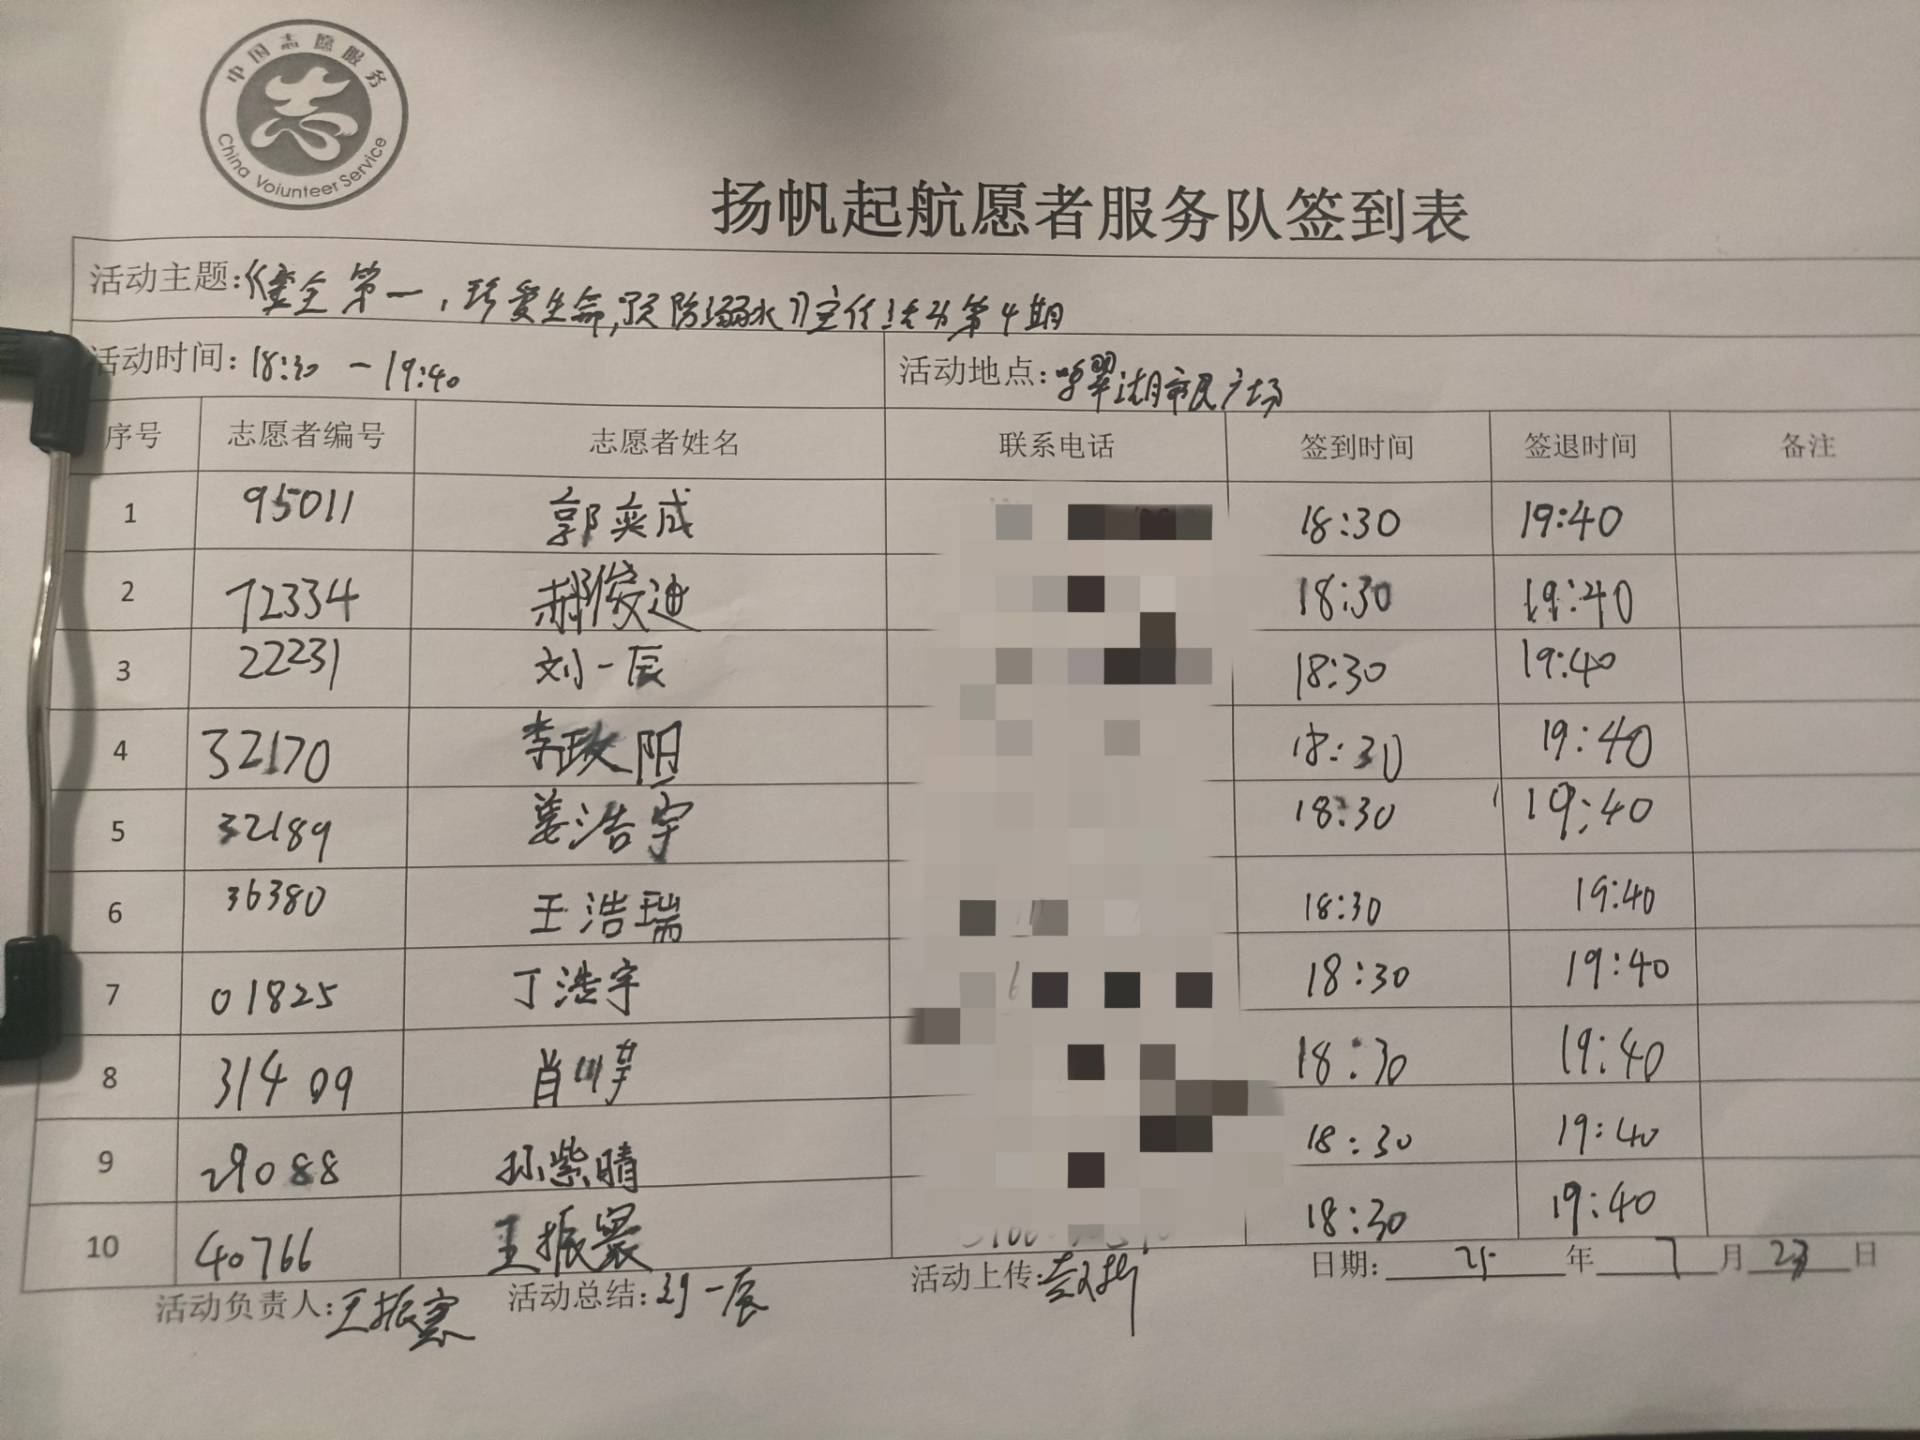 中国志愿服务
China Voiunteer Service
扬帆起航愿者服务队签到表
活动主题:《安全第一,珍爱生命,预防溺水》宣传活动第4期
活动时间:18:30-19:40 活动地点:翠湖市民广场
序号 志愿者编号 志愿者姓名 联系电话 签到时间 签退时间 备注
1 95011 郭奕成 18:30 19:40
2 72334 郝俊迪 18:30 19:40
3 22231 刘一辰 18:30 19:40
4 32170 李政阳 18:30 19:40
5 32189 姜浩宇 18:30 19:40
6 36380 王浩瑞 18:30 19:40
7 01825 丁浩宇 18:30 19:40
8 31409 肖 18:30 19:40
9 29088 孙紫晴 18:30 19:40
10 40766 王振寰 18:30 19:40
活动负责人:王振寰 活动总结:刘一辰 活动上传: 日期: 25 年 7 月 23 日